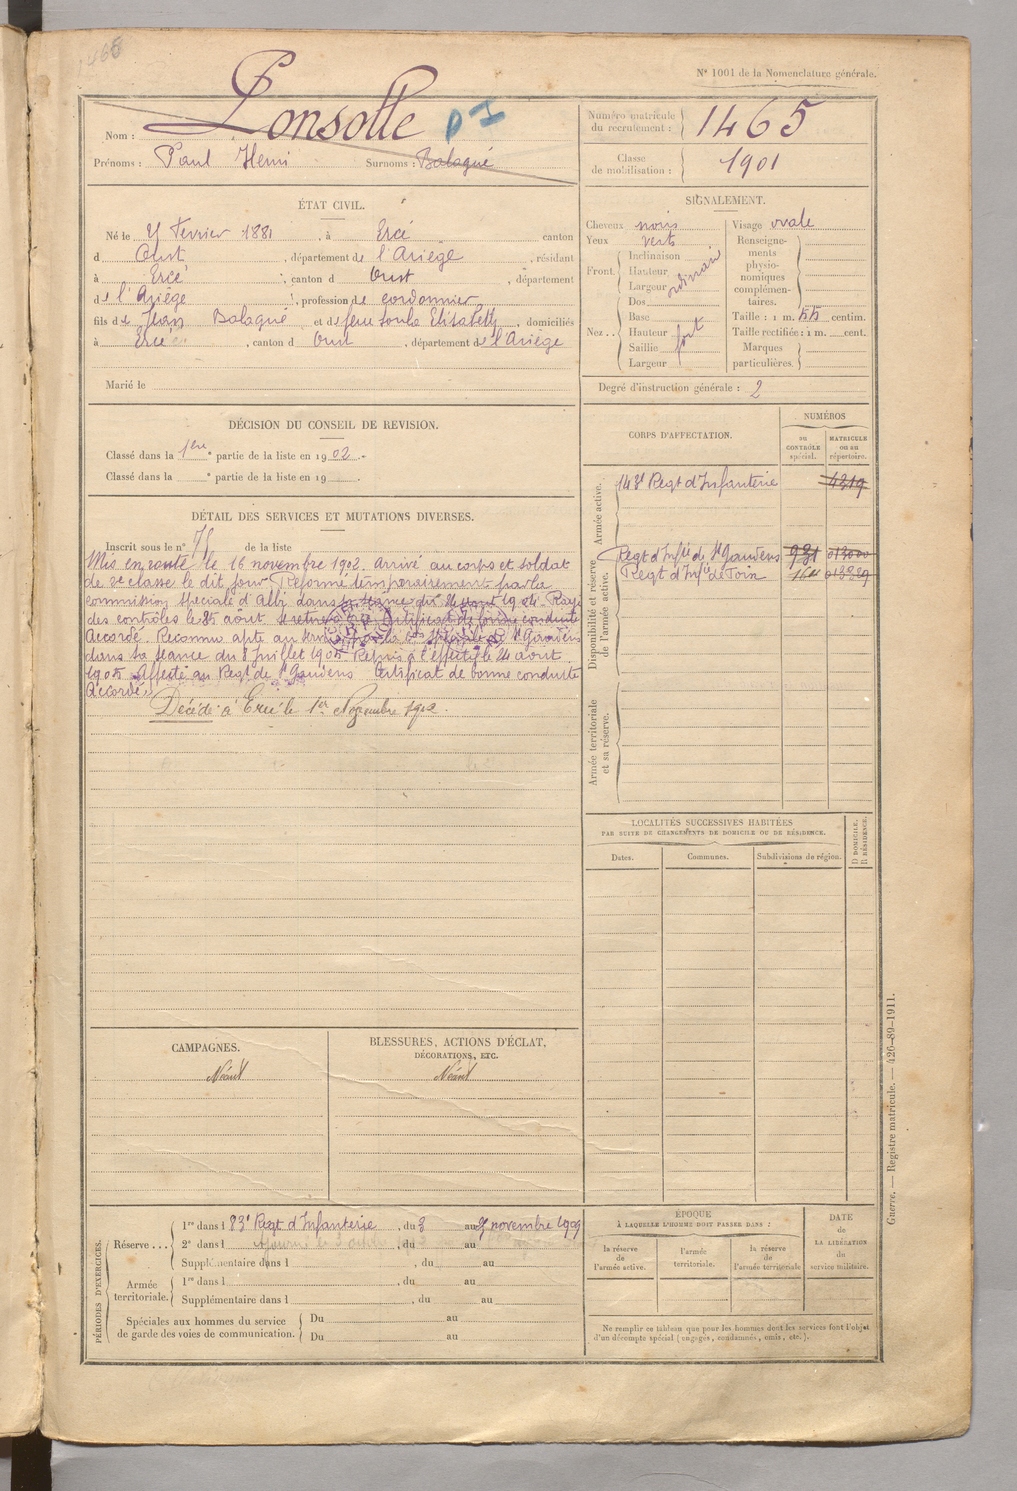 1465
N° 1001 de la Nomenclature générale.
Nom : Ponsolle
Prénoms : Paul Henri Surnoms : Balagué
Numéro matricule du recrutement : 1465
Classe de mobilisation : 1901
ÉTAT CIVIL.
Né le février 1881, à Ercé canton
d Oust, département de l'Ariège, résidant
à Ercé, canton d Oust, département
de l'Ariège, profession de cordonnier
fils de Jean Balagué et de feue Soula Elisabeth, domiciliés
à Ercé, canton d Oust, département de l'Ariège
Marié le
SIGNALEMENT.
Cheveux noirs
Yeux verts
Front. Inclinaison
Hauteur ordinaire
Largeur
Nez.. Dos
Base
Hauteur fort
Saillie
Largeur
Visage ovale
Renseignements physionomiques complémentaires.
Taille : 1 m. 55 centim.
Taille rectifiée : 1 m. cent.
Marques particulières.
Degré d'instruction générale : 2
DÉCISION DU CONSEIL DE REVISION.
Classé dans la 1ère partie de la liste en 1902.
Classé dans la ° partie de la liste en 19 .
DÉTAIL DES SERVICES ET MUTATIONS DIVERSES.
Inscrit sous le n° 75 de la liste
Mis en route le 16 novembre 1902. Arrivé au corps et soldat
de 2e classe le dit jour. Réformé temporairement par la
commission spéciale d'Albi dans sa séance du août 1904. Rayé
des contrôles le 25 août. certificat de bonne conduite
Accordé. Reconnu apte au service par la Con spéciale de St Gaudens
dans sa séance du 8 Juillet 1905. Remis à l'effectif le 24 août
1905. Affecté au Regt de St Gaudens Certificat de bonne conduite
Accordé.
Décédé à Ercé le 1er Novembre 1912.
CORPS D'AFFECTATION.
NUMÉROS
au CONTRÔLE spécial.
MATRICULE ou au répertoire.
Armée active.
143e Regt d'Infanterie 4219
Disponibilité et réserve de l'armée active.
Regt d'Infie de St Gaudens 931 013000
Regt d'Infie de Foix
Armée territoriale et sa réserve.
LOCALITÉS SUCCESSIVES HABITÉES
PAR SUITE DE CHANGEMENTS DE DOMICILE OU DE RÉSIDENCE.
Dates. Communes. Subdivisions de région. D DOMICILE. R RÉSIDENCE.
CAMPAGNES.
Néant
BLESSURES, ACTIONS D'ÉCLAT,
DÉCORATIONS, ETC.
Néant
PÉRIODES D'EXERCICES.
Réserve... 1re dans l 83e Regt d'Infanterie, du 3 au novembre 1909
2e dans l , du au
Supplémentaire dans l , du au
Armée territoriale. 1re dans l , du au
Supplémentaire dans l , du au
Spéciales aux hommes du service de garde des voies de communication. Du au
Du au
ÉPOQUE
À LAQUELLE L'HOMME DOIT PASSER DANS :
la réserve de l'armée active.
l'armée territoriale.
la réserve de l'armée territoriale
DATE de LA LIBÉRATION du service militaire.
Ne remplir ce tableau que pour les hommes dont les services font l'objet
d'un décompte spécial (engagés, condamnés, omis, etc.).
Guerre. — Registre matricule. — 426-89-1911.